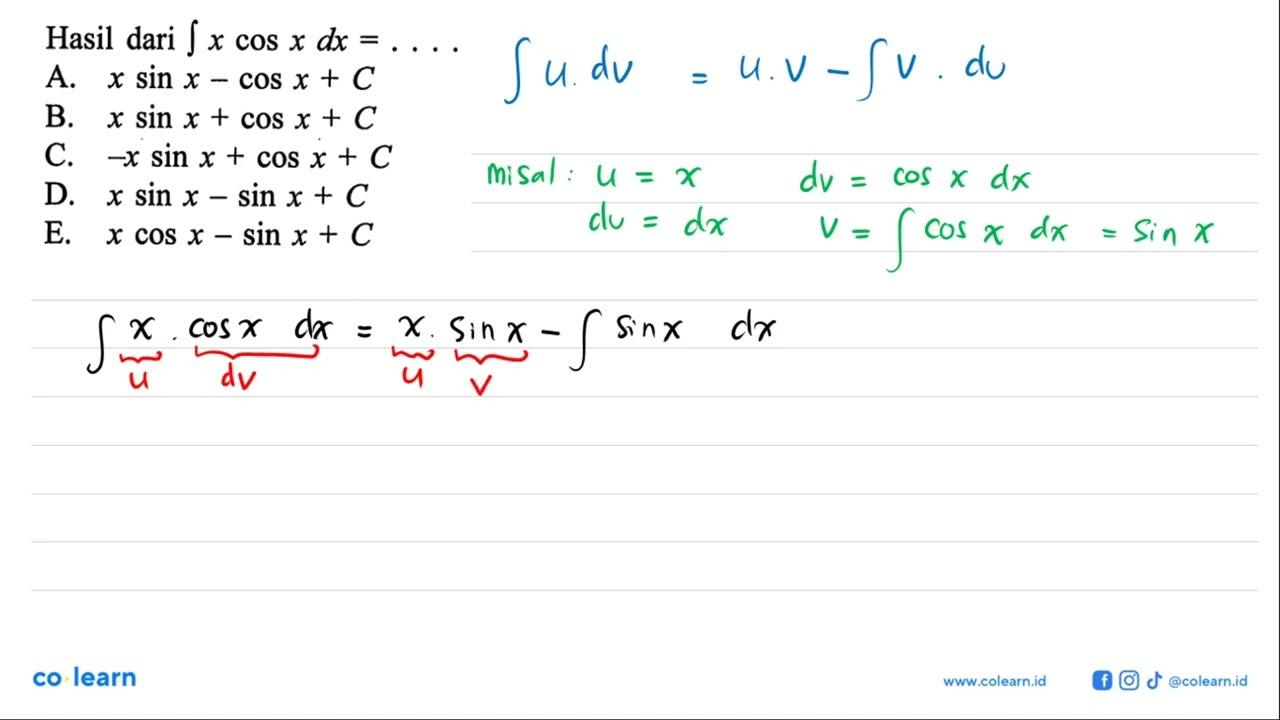 Hasil dari ∫ x cos x dx = . . . .
A. x sin x – cos x + C
B. x sin x + cos x + C
C. –x sin x + cos x + C
D. x sin x – sin x + C
E. x cos x – sin x + C
∫ u. dv = u. v – ∫ v . du
misal : u = x dv = cos x dx
du = dx v = ∫ cos x dx = sin x
∫ x . cos x dx = x. sin x – ∫ sin x dx
u dv u v
co learn
www.colearn.id @colearn.id